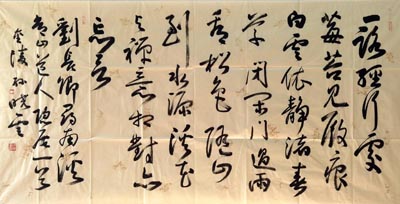 一路經行處
莓苔見履痕
白雲依静渚春
草閉閑门過雨
看松色随山
到水源溪花
与禅意相對亦
忘言
劉長卿尋南溪
常山道人隐居一首
金陵孫曉雲